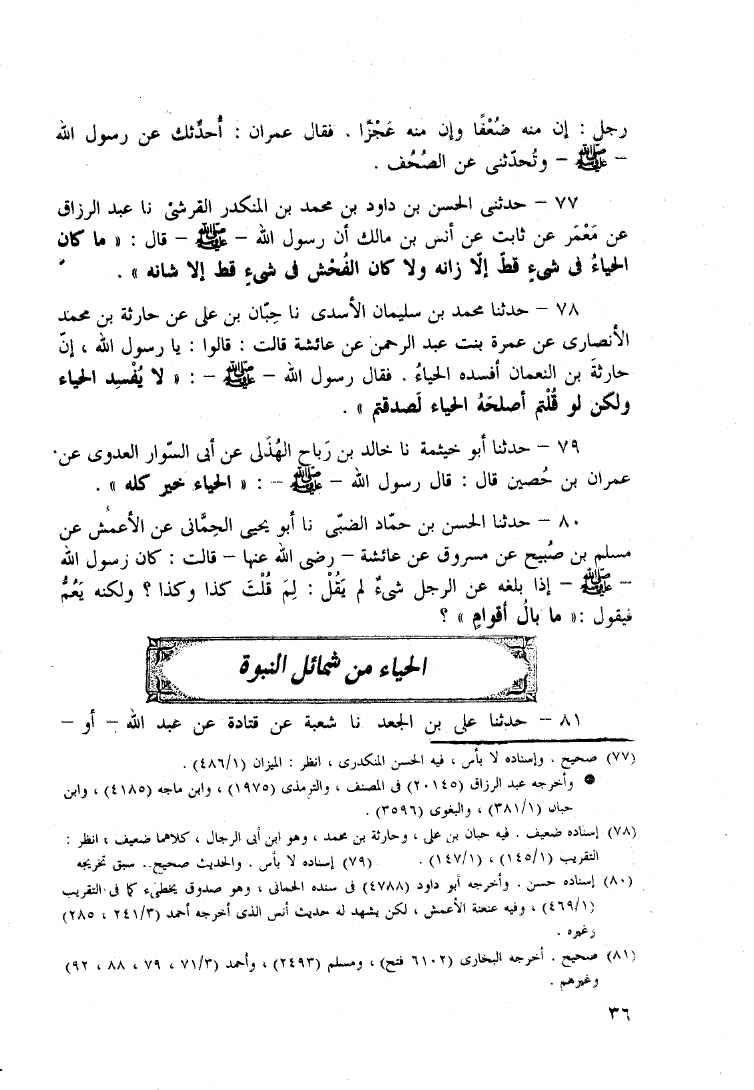 رجل : إن منه ضُعْفًا وإن منه عَجْزًا . فقال عمران : أُحدِّثك عن رسول الله
– ﷺ – وتُحدّثنى عن الصُحُف .
٧٧ – حدثنى الحسن بن داود بن محمد بن المنكدر القرشىّ نا عبد الرزاق
عن مَعْمَر عن ثابت عن أنس بن مالك أن رسول الله – ﷺ – قال : « ما كان
الحياءُ فى شىءٍ قطّ إلّا زانه ولا كان الفُحْش فى شىءٍ قط إلا شانه » .
٧٨ – حدثنا محمد بن سليمان الأسدى نا حِبّان بن على عن حارثة بن محمد
الأنصارى عن عمرة بنت عبد الرحمن عن عائشة قالت : قالوا : يا رسول الله ، إنّ
حارثةَ بن النعمان أفسده الحياءُ . فقال رسول الله – ﷺ – : « لا يُفْسِد الحياء
ولكن لو قُلْتم أصلحَهُ الحياء لَصدقتم » .
٧٩ – حدثنا أبو خيثمة نا خالد بن رَباح الهُذَلى عن أبى السّوار العدوى عن
عمران بن حُصين قال : قال رسول الله – ﷺ – : « الحياء خير كله » .
٨٠ – حدثنا الحسن بن حمّاد الضبّى نا أبو يحيى الحِمَّانى عن الأعمش عن
مسلم بن صُبيح عن مسروق عن عائشة – رضى الله عنها – قالت : كان رسول الله
– ﷺ – إذا بلغه عن الرجل شىءٌ لم يَقُلْ : لِمَ قُلْتَ كذا وكذا ؟ ولكنه يَعُمُّ
فيقول : « ما بالُ أقوامٍ » ؟
الحياء من شمائل النبوة
٨١ – حدثنا على بن الجعد نا شعبة عن قتادة عن عبد الله – أو –
(٧٧) صحيح . وإسناده لا بأس ، فيه الحسن المنكدرى ، انظر : الميزان (٤٨٦/١) .
● وأخرجه عبد الرزاق (٢٠١٤٥) فى المصنف ، والترمذى (١٩٧٥) ، وابن ماجه (٤١٨٥) ، وابن
حبان (٣٨١/١) ، والبغوى (٣٥٩٦) .
(٧٨) إسناده ضعيف . فيه حبان بن على ، وحارثة بن محمد ، وهو ابن أبى الرجال ، كلاهما ضعيف ، انظر :
التقريب (١٤٥/١) ، (١٤٧/١) . (٧٩) إسناده لا بأس . والحديث صحيح .. سبق تخريجه
(٨٠) إسناده حسن . وأخرجه أبو داود (٤٧٨٨) فى سنده الحمانى ، وهو صدوق يخطىء كما فى التقريب
(٤٦٩/١) ، وفيه عنعنة الأعمش ، لكن يشهد له حديث أنس الذى أخرجه أحمد (٢٤١/٣ ، ٢٨٥)
وغيره .
(٨١) صحيح . أخرجه البخارى (٦١٠٢ فتح) ، ومسلم (٢٤٩٣) ، وأحمد (٧١/٣ ، ٧٩ ، ٨٨ ، ٩٢)
وغيرهم .
٣٦